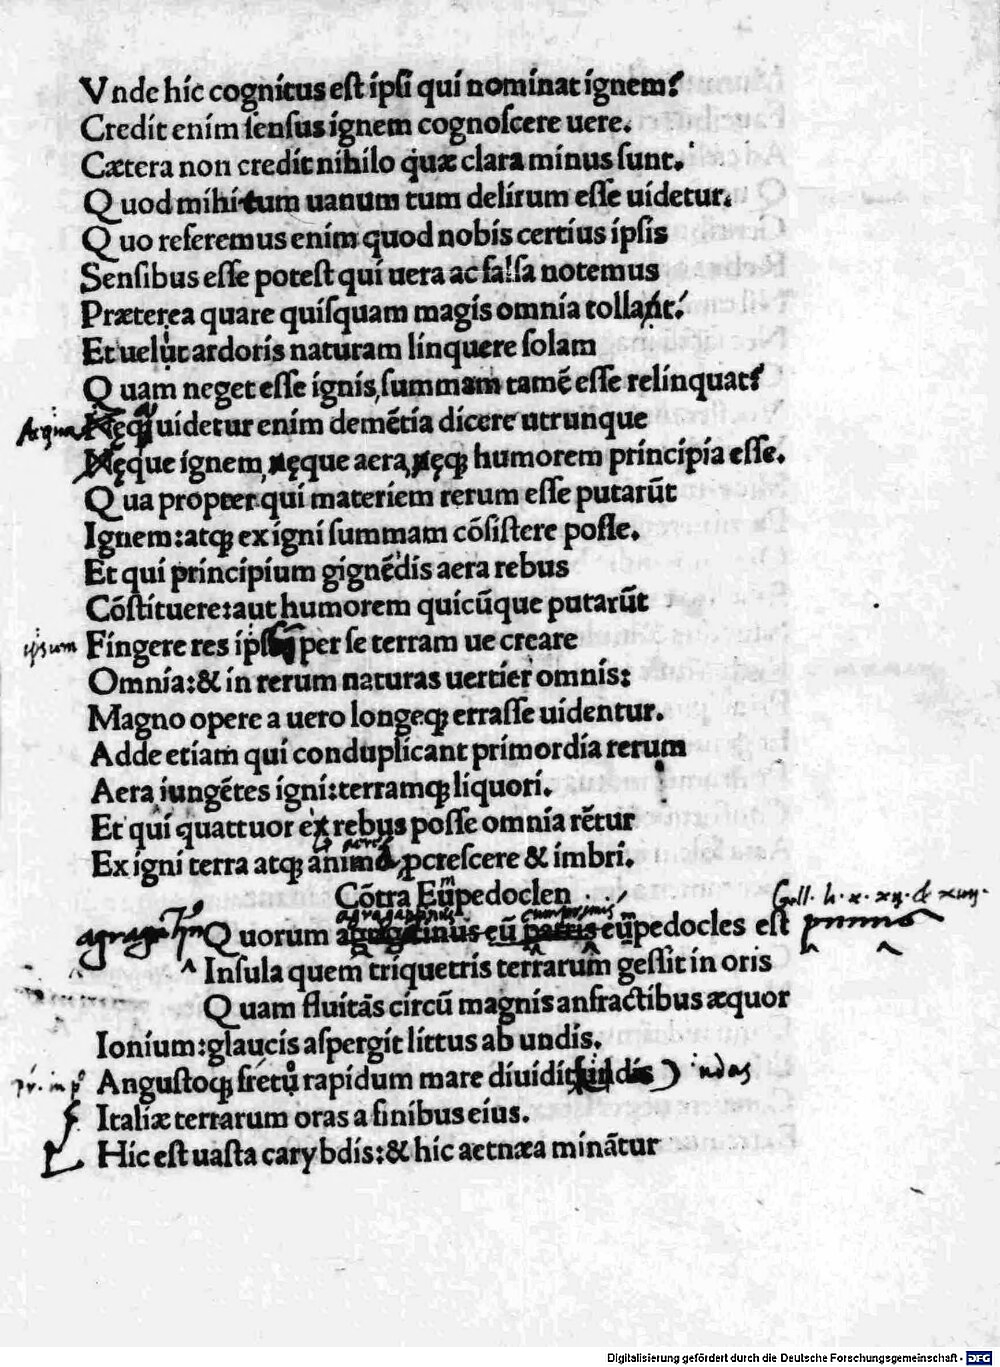 Vnde hic cognitus est ipsi qui nominat ignem?
Credit enim sensus ignem cognoscere uere.
Cætera non credit nihilo quæ clara minus sunt.
Quod mihi tum uanum tum delirum esse uidetur.
Quo referemus enim quod nobis certius ipsis
Sensibus esse potest qui uera ac falsa notemus
Præterea quare quisquam magis omnia tollant?
Et uelut ardoris naturam linquere solam
Quam neget esse ignis, summam tamē esse relinquat?
Aequa
uidetur enim demētia dicere utrunque
Neque ignem, neque aera, neqꝫ humorem principia esse.
Qua propter qui materiem rerum esse putarūt
Ignem: atqꝫ ex igni summam cōsistere posse.
Et qui principium gignēdis aera rebus
Cōstituere: aut humorem quicūque putarūt
ipsum Fingere res per se terram ue creare
Omnia: & in rerum naturas uertier omnis:
Magno opere a uero longeqꝫ errasse uidentur.
Adde etiam qui conduplicant primordia rerum
Aera iungētes igni: terramqꝫ liquori.
Et qui quattuor ex rebus posse omnia rētur
Ex igni terra atqꝫ anima ꝓcrescere & imbri.
Cōtra Empedoclen
Quorum agragatinus cū patris empedocles est
Insula quem triquetris terrarum gessit in oris
Quam fluitās circū magnis anfractibus æquor
Ionium: glaucis aspergit littus ab undis.
Angustoqꝫ fretu rapidum mare diuidit undis undas
Italiæ terrarum oras a finibus eius.
Hic est uasta carybdis: & hic aetnæa minātur
Digitalisierung gefördert durch die Deutsche Forschungsgemeinschaft - DFG